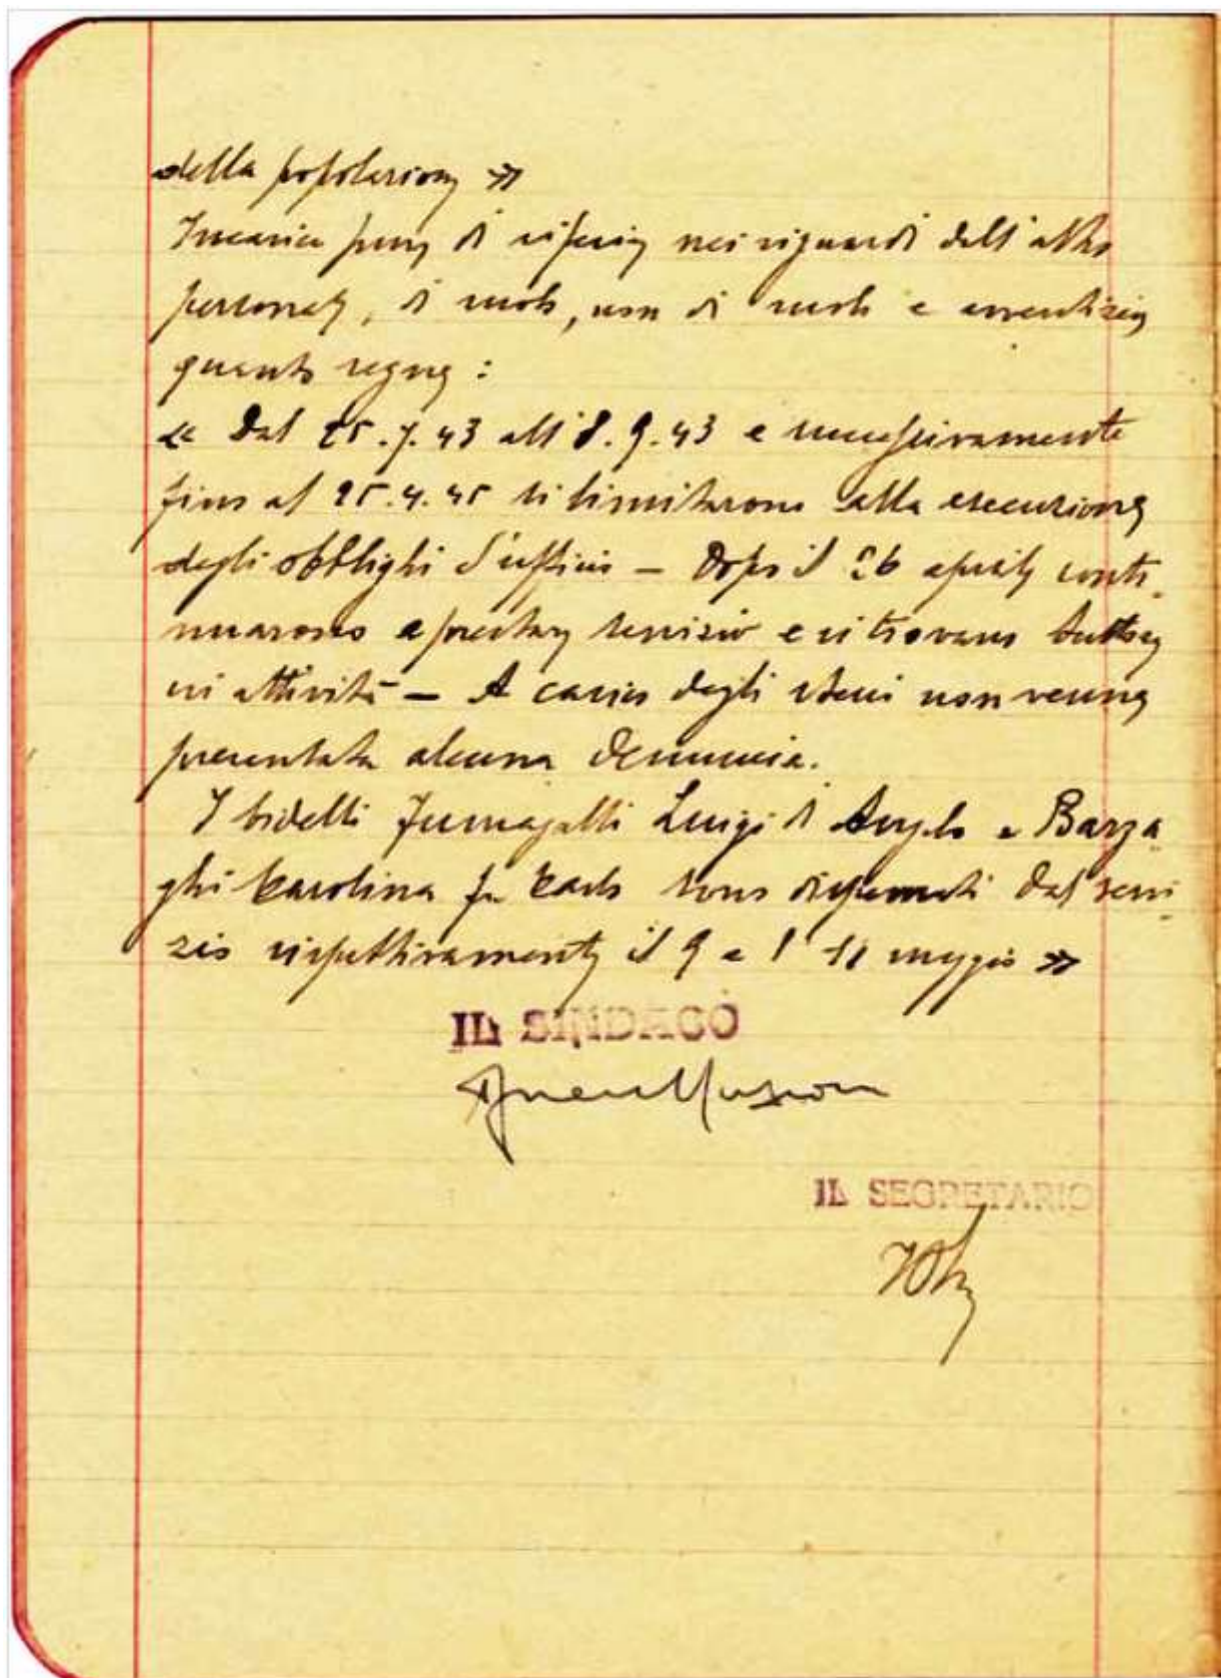 della popolazione »
Incarica pure di riferire nei riguardi dell'altro
personale, di ruolo, non di ruolo e avventizio
quanto segue :
« Dal 25.7.43 all'8.9.43 e successivamente
fino al 25.4.45 si limitarono alla esecuzione
degli obblighi d'ufficio — Dopo il 26 aprile conti-
nuarono a prestare servizio e si trovano tuttora
in attività — A carico degli stessi non venne
presentata alcuna denuncia.
I bidelli Fumagalli Luigi di Angelo e Barza-
ghi Carolina fu Carlo sono dispensati dal servi-
zio rispettivamente il 9 e l'11 maggio »
IL SINDACO
IL SEGRETARIO